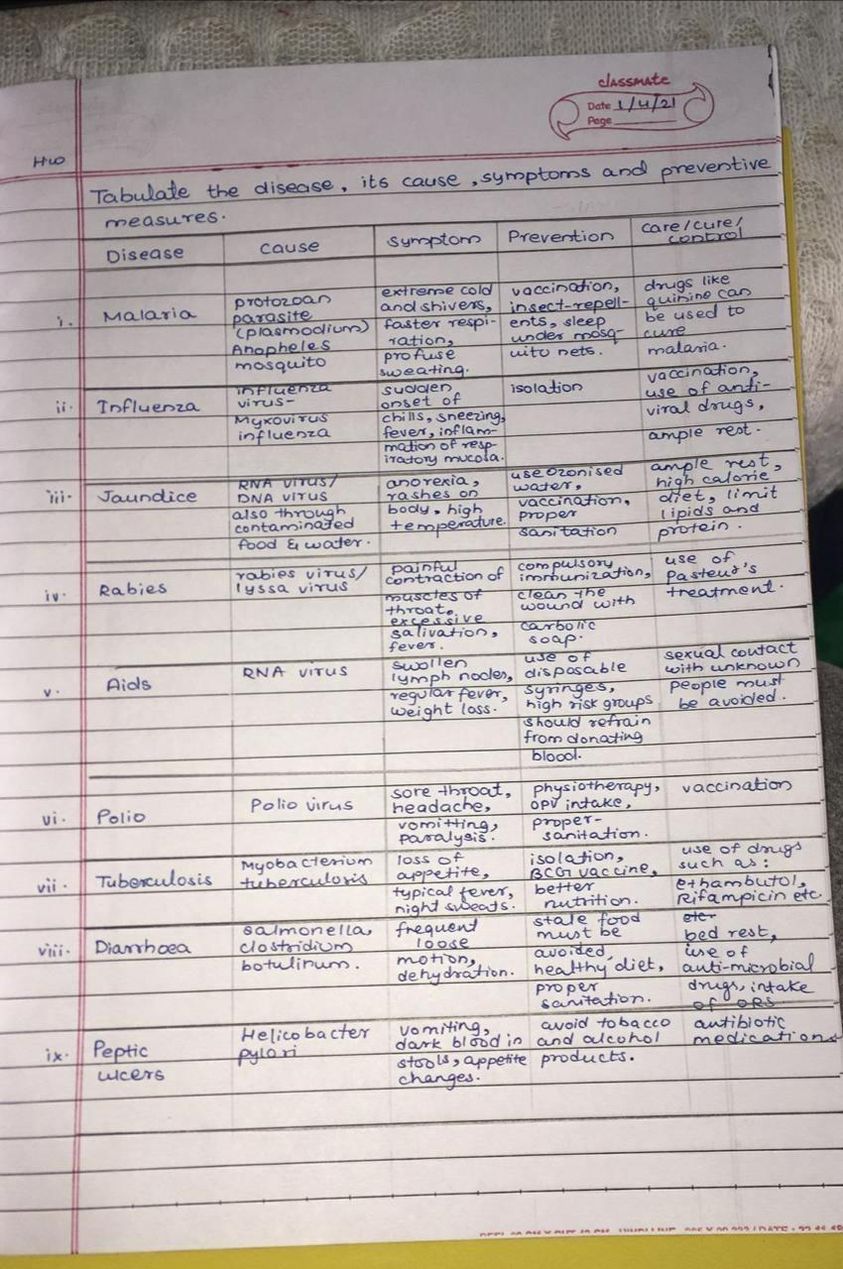 classmate
Date 1/4/21
Page
HW
Tabulate the disease, its cause, symptoms and preventive
measures.
Disease
Cause
Symptom
Prevention
care/cure/
control
i.
Malaria
protozoan
parasite
(plasmodium)
Anopheles
mosquito
extreme cold
and shivers,
faster respi-
ration,
profuse
sweating.
vaccination,
insect-repell-
ents, sleep
under mosq-
uito nets.
drugs like
quinine can
be used to
cure
malaria.
ii.
Influenza
influenza
virus-
Myxovirus
influenza
sudden
onset of
chills, sneezing,
fever, inflam-
mation of resp-
iratory mucosa.
isolation
vaccination,
use of anti-
viral drugs,
ample rest.
iii.
Jaundice
RNA virus/
DNA virus
also through
contaminated
food & water.
anorexia,
rashes on
body, high
temperature.
use ozonised
water,
vaccination,
proper
sanitation
ample rest,
high calorie
diet, limit
lipids and
protein.
iv.
Rabies
rabies virus/
lyssa virus
painful
contraction of
muscles of
throat,
excessive
salivation,
fever.
compulsory
immunization,
clean the
wound with
carbolic
soap.
use of
Pasteur's
treatment.
v.
Aids
RNA virus
swollen
lymph nodes,
regular fever,
weight loss.
use of
disposable
syringes,
high risk groups
should refrain
from donating
blood.
sexual contact
with unknown
people must
be avoided.
vi.
Polio
Polio virus
sore throat,
headache,
vomitting,
paralysis.
physiotherapy,
OPV intake,
proper-
sanitation.
vaccination
vii.
Tuberculosis
Myobacterium
tuberculosis
loss of
appetite,
typical fever,
night sweats.
isolation,
BCG vaccine,
better
nutrition.
use of drugs
such as:
ethambutol,
Rifampicin etc.
viii.
Diarrhoea
salmonella,
clostridium
botulinum.
frequent
loose
motion,
dehydration.
stale food
must be
avoided,
healthy diet,
proper
sanitation.
etc
bed rest,
use of
anti-microbial
drugs, intake
of ORS
ix.
Peptic
ulcers
Helicobacter
pylori
vomiting,
dark blood in
stools, appetite
changes.
avoid tobacco
and alcohol
products.
antibiotic
medications